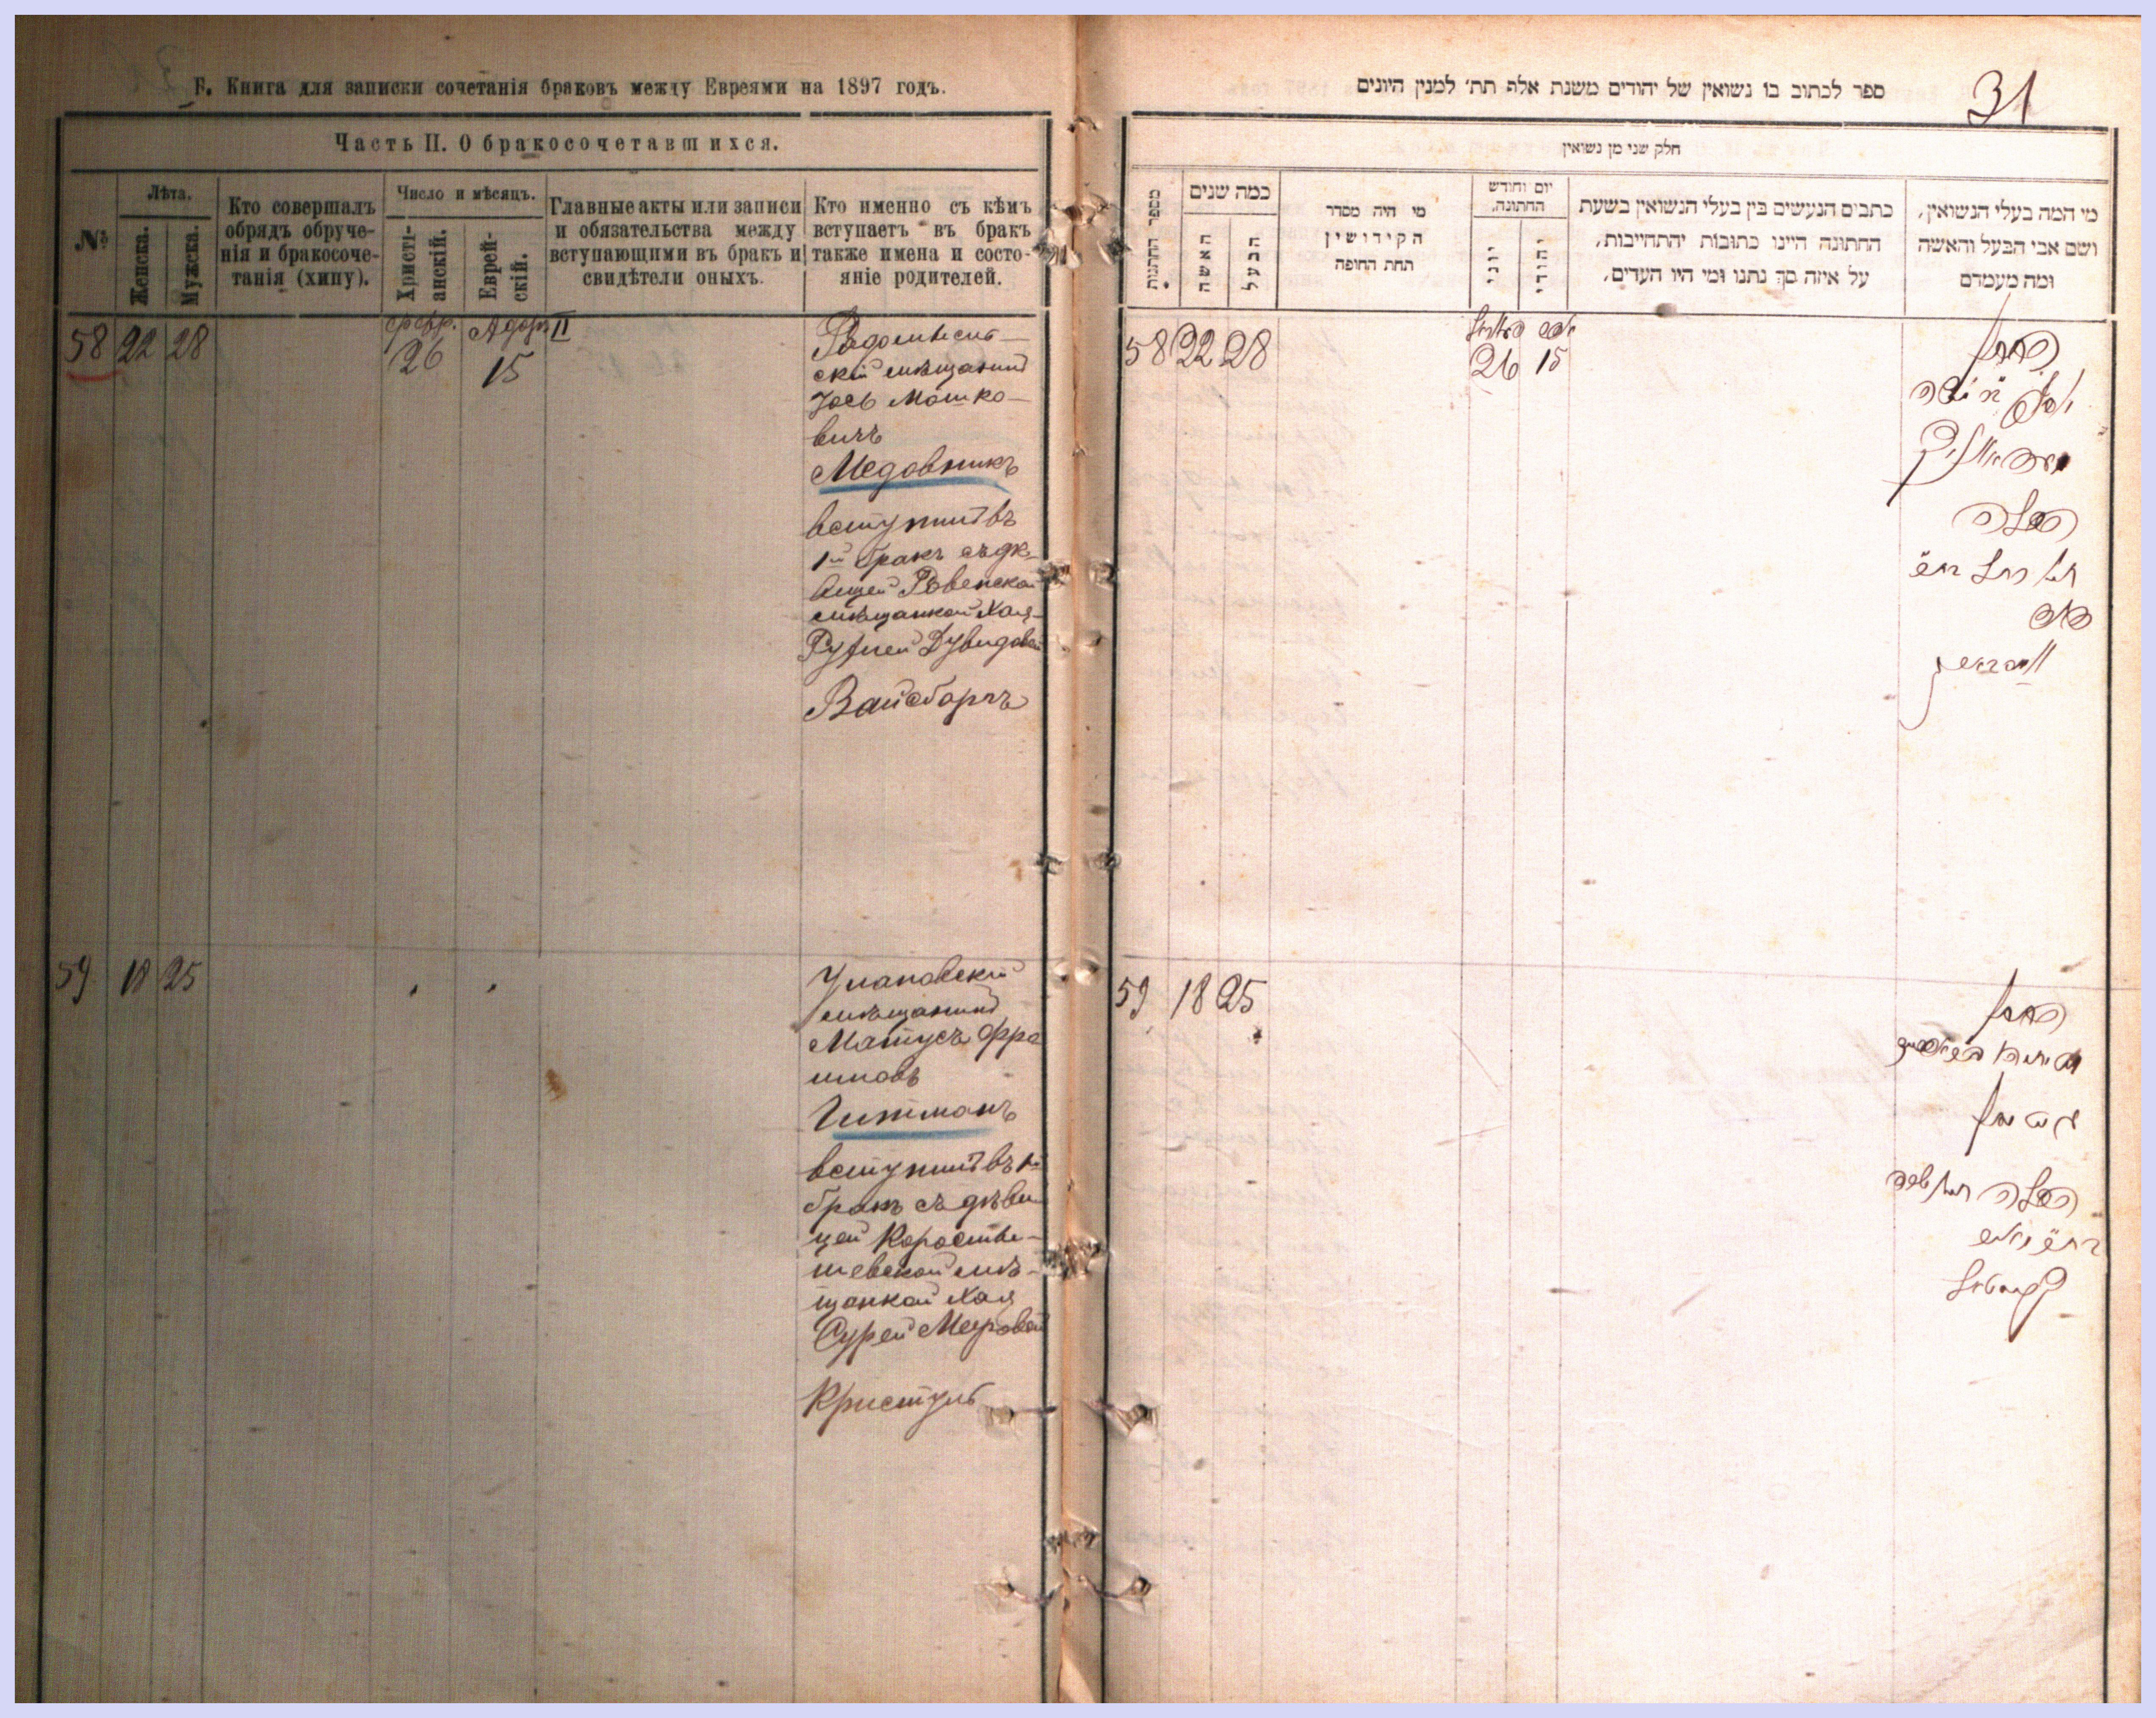 Б. Книга для записки сочетанія браковъ между Евреями на 1897 годъ.
Часть II. О бракосочетавшихся.
№
Лѣта.
Женска.
Мужска.
Кто совершалъ
обрядъ обруче-
нія и бракосоче-
танія (хипу).
Число и мѣсяцъ.
Христі-
анскій.
Еврей-
скій.
Главные акты или записи
и обязательства между
вступающими въ бракъ и
свидѣтели оныхъ.
Кто именно съ кѣмъ
вступаетъ въ бракъ
также имена и состо-
яніе родителей.
58 22 28
февр.
26
Адоръ II
15
Радомысль-
скій мѣщанинъ
Іось Мошко-
вичъ
Медовникъ
вступилъ въ
1й бракъ съ дѣ-
вицей Ровенской
мѣщанкой Хая-
Рухлей Дувидовой
Вайсбортъ
59 18 25
Улановскій
мѣщанинъ
Матусъ Фро
имовъ
Гитманъ
вступилъ въ 1й
бракъ съ дѣви
цей Коросты-
шевской мѣ-
щанкой Хая
Сурей Меировой
Кристулъ
ספר לכתוב בו נשואין של יהודים משנת אלף תת׳ למנין היונים
31
חלק שני מן נשואין
מספר חתנות
כמה שנים
האשה
הבעל
מי היה מסדר
הקידושין
תחת החופה
יום וחודש
החתונה.
יוני
יהודי
כתבים הנעשים בין בעלי הנשואין בשעת
החתונה היינו כתובות והתחייבות,
על איזה סך נתנו ומי היו העדים,
מי המה בעלי הנשואין,
ושם אבי הבעל והאשה
ומה מעמדם
58 22 28
26 15
החתן
הכלה
59 18 25
החתן